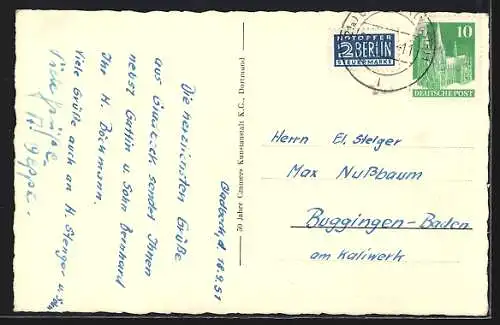 Gladbeck, d. 16.9.51
Die herzlichsten Grüße
aus Gladbeck sendet Ihnen
nebst Gattin u. Sohn Bernhard
Ihr H. Bochmann.
Viele Grüße auch an H. Steiger u. Frau
Viele Grüße
50 Jahre Cramers Kunstanstalt K.G., Dortmund
NOTOPFER
2 BERLIN
STEUERMARKE
10
DEUTSCHE POST
Herrn El. Steiger
Max Nußbaum
Buggingen-Baden
am Kaliwerk